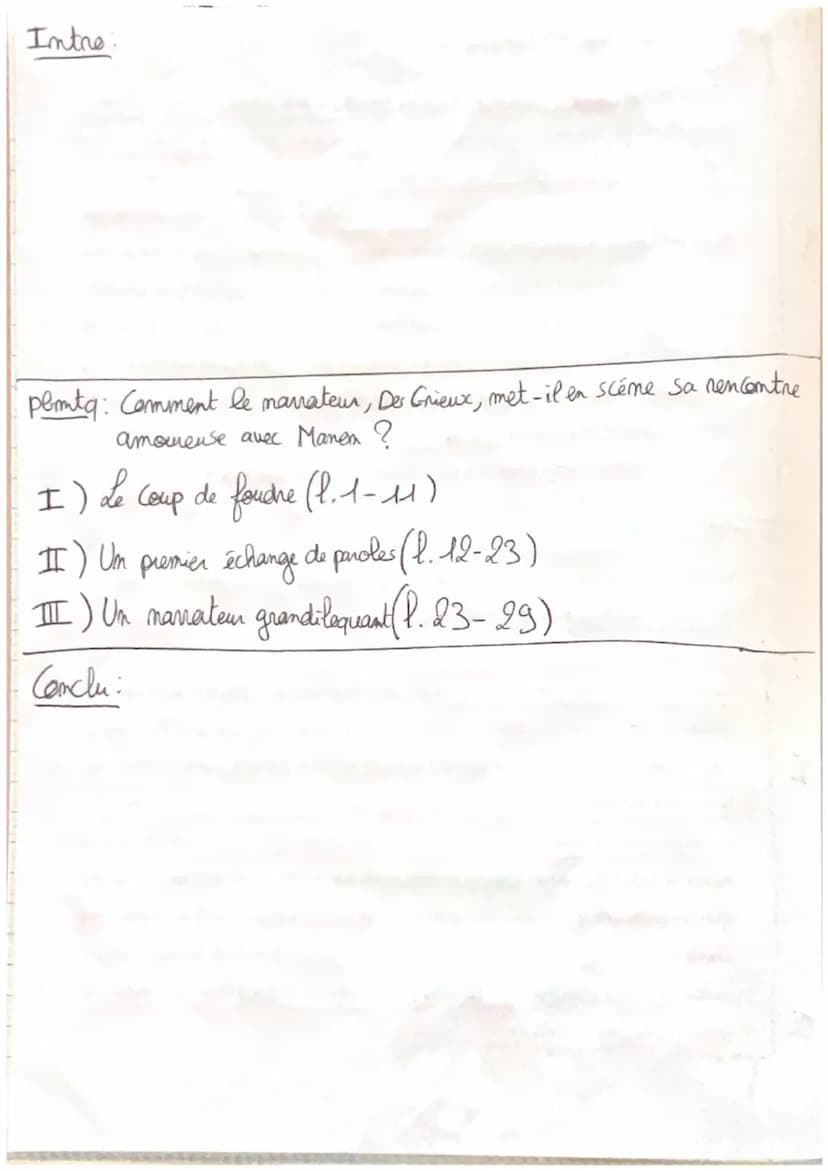 Intro:
pbmtq: Comment le narrateur, Des Grieux, met-il en scéne sa rencontre
amoureuse avec Manon ?
I) Le Coup de foudre (l.1-11)
II) Un premier échange de paroles (l.12-23)
III) Un narrateur grandiloquant (l.23-29)
Conclu: